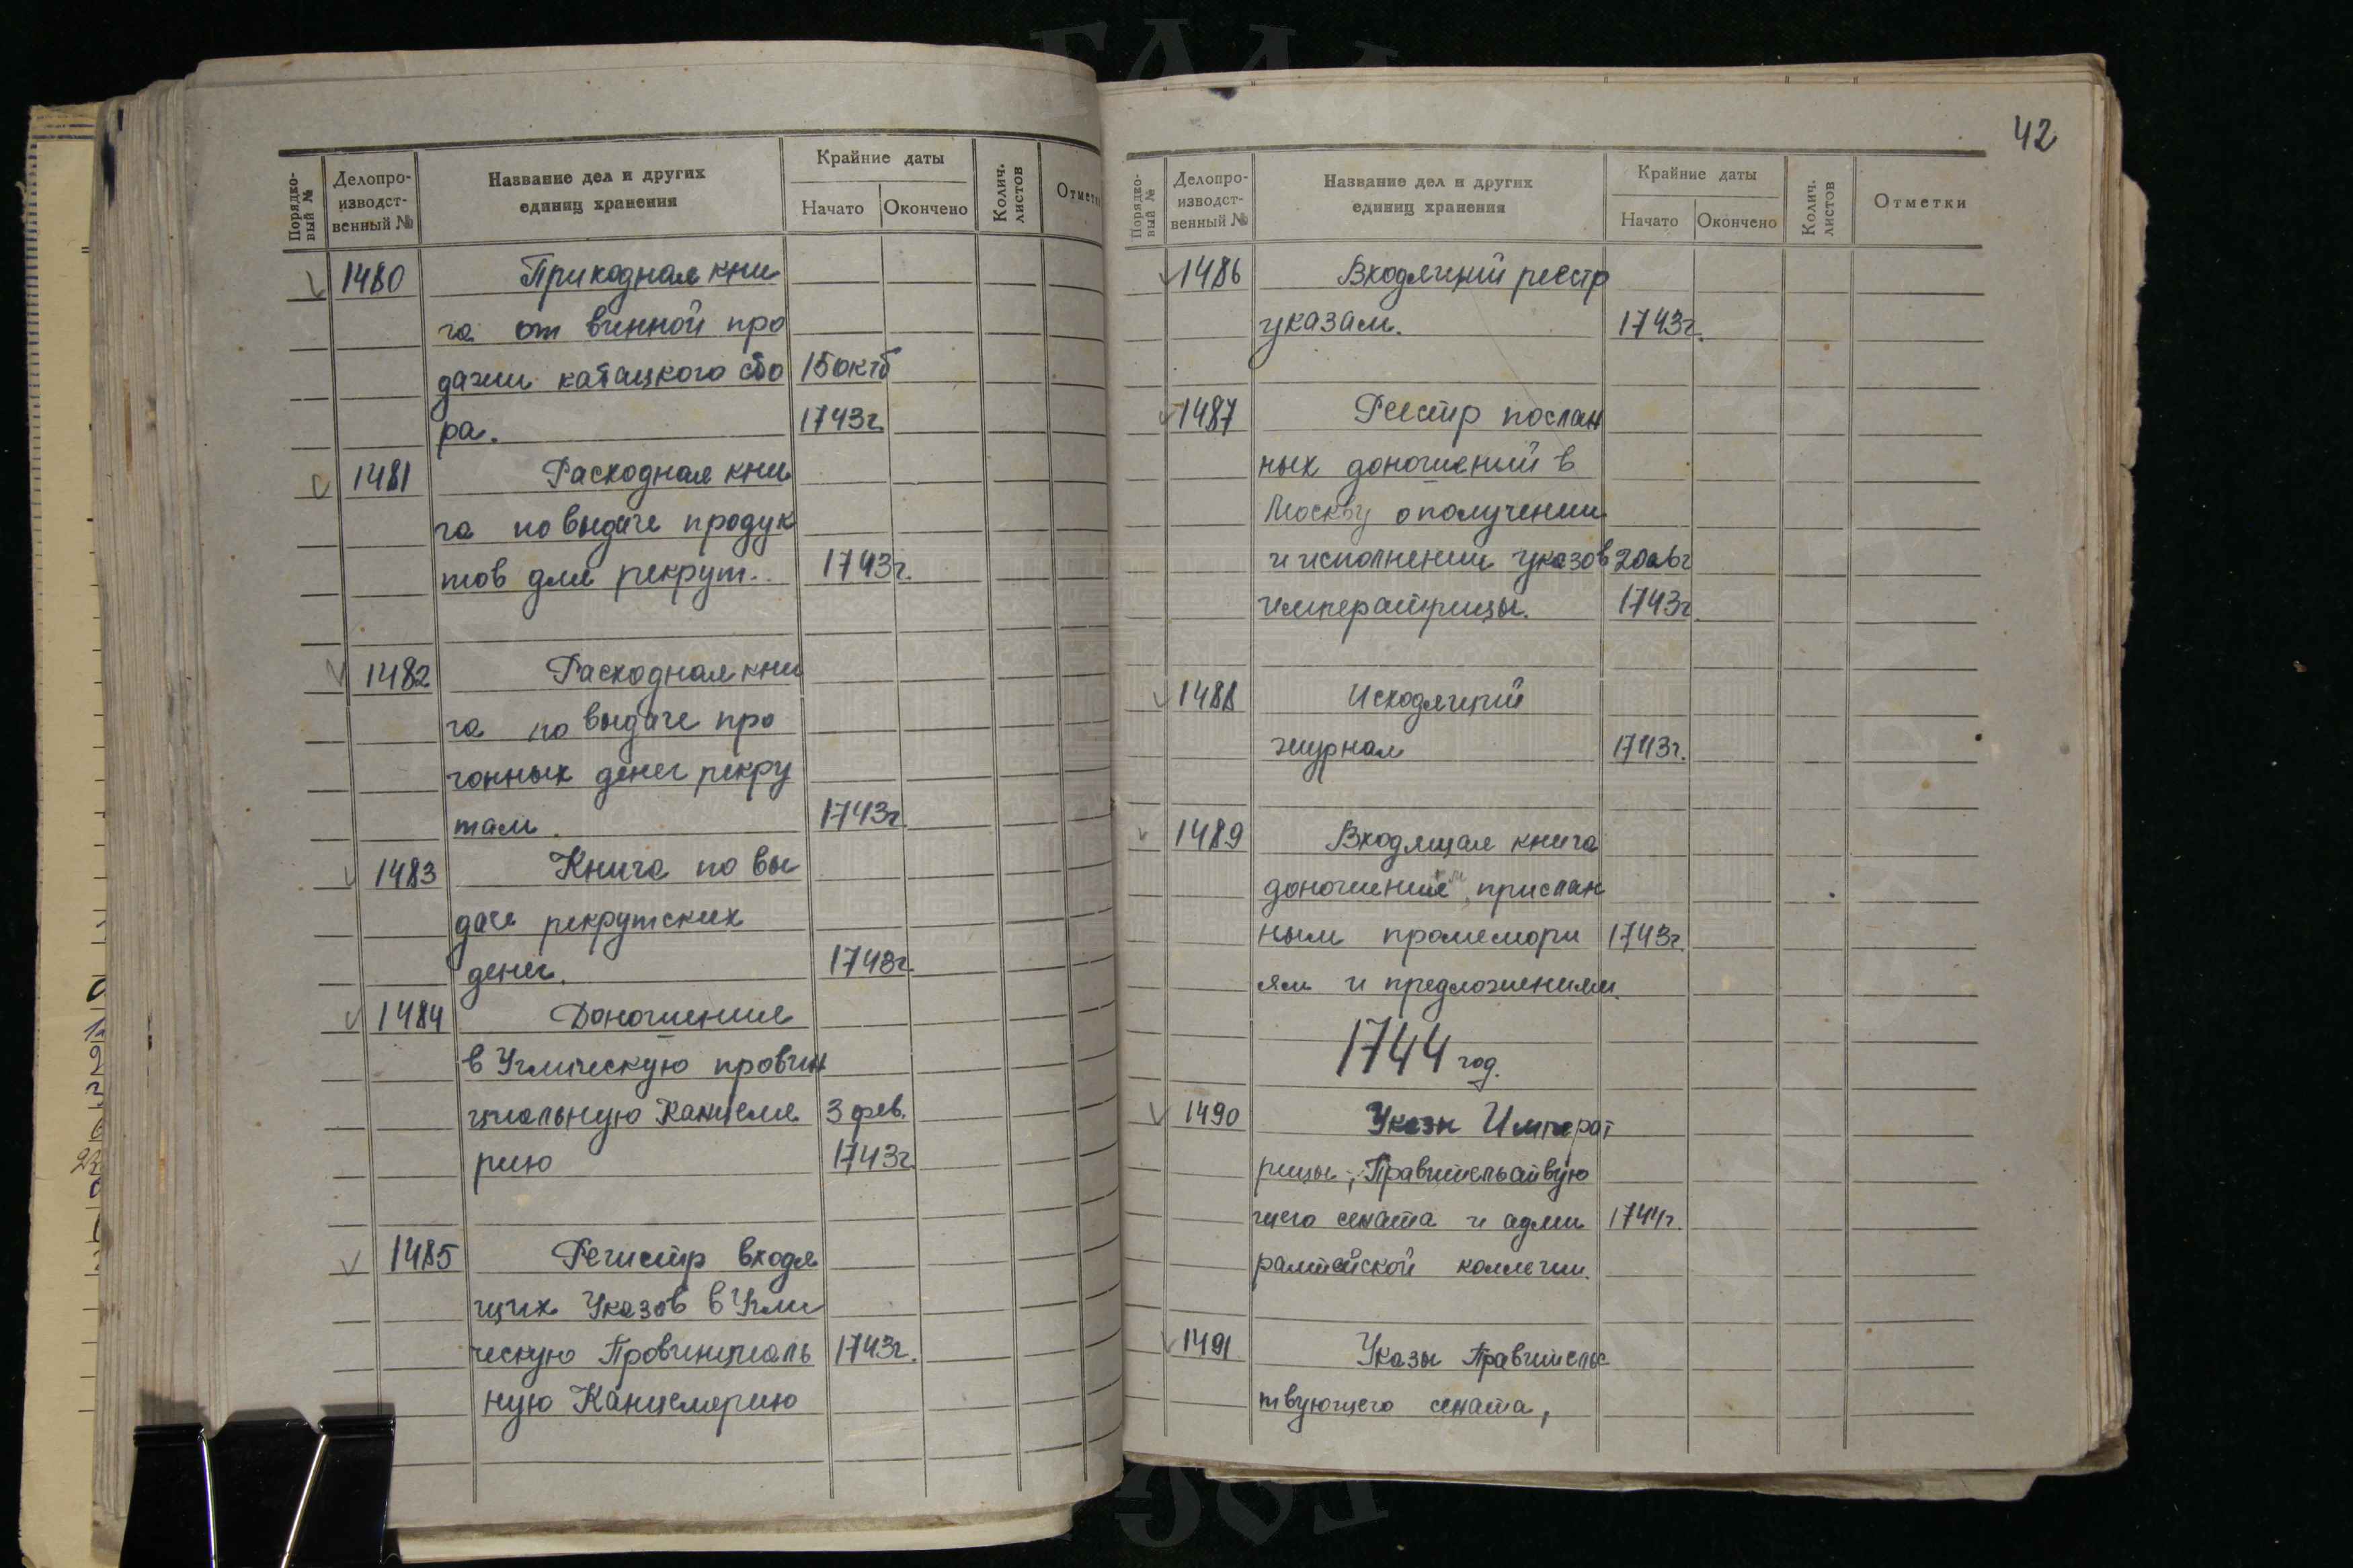 Порядко-
вый №
Делопро-
изводст-
венный №
Название дел и других
единиц хранения
Крайние даты
Начато
Окончено
Колич.
листов
Отметк
1480 Приходная кни
га от винной про
дажи кабацкого сбо 15 октб
ра. 1743г.
1481 Расходная кни
га по выдаче продук
тов для рекрут. 1743г.
1482 Расходная кни
га по выдаче про
гонных денег рекру
там. 1743г.
1483 Книга по вы
даче рекрутских
денег. 1743г.
1484 Доношение
в Угличскую провин
циальную Канцеля 3 фев.
рию 1743г.
1485 Регистр входя
щих Указов в Угли
ческую Провинциаль 1743г.
ную Канцелярию
42
Порядко-
вый №
Делопро-
изводст-
венный №
Название дел и других
единиц хранения
Крайние даты
Начато
Окончено
Колич.
листов
Отметки
1486 Входящий реестр
указам. 1743г.
1487 Реестр послан
ных доношений в
Москву о получении
и исполнении указов 20 авг
императрицы. 1743г.
1488 Исходящий
журнал 1743г.
1489 Входящая книга
доношениям, прислан
ным промемори 1743г.
ям и предложениям.
1744 год.
1490 Указы Императ
рицы, Правительствую
щего сената и адми 1744г.
ралтейской коллегии.
1491 Указы Правительс
твующего сената,